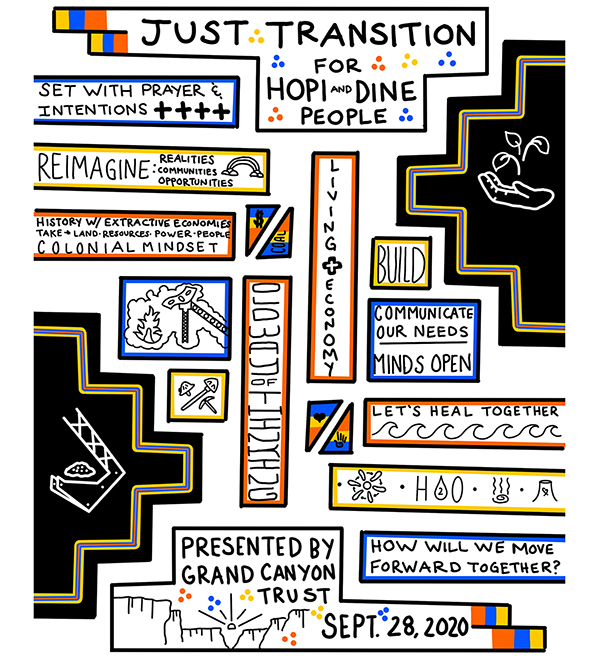 JUST TRANSITION
FOR
HOPI AND DINE
PEOPLE
SET WITH PRAYER &
INTENTIONS ++++
REIMAGINE: REALITIES
COMMUNITIES
OPPORTUNITIES
HISTORY W/ EXTRACTIVE ECONOMIES
TAKE → LAND · RESOURCES · POWER · PEOPLE
COLONIAL MINDSET
$
COAL
LIVING + ECONOMY
BUILD
COMMUNICATE
OUR NEEDS
MINDS OPEN
LET'S HEAL TOGETHER
H2O
HOW WILL WE MOVE
FORWARD TOGETHER?
PRESENTED BY
GRAND CANYON
TRUST
SEPT. 28, 2020